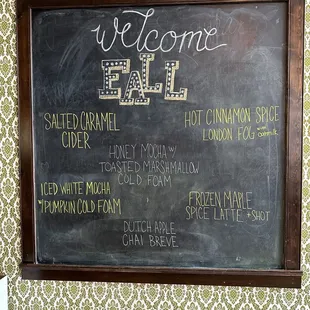 Welcome
FALL
SALTED CARAMEL
CIDER
HOT CINNAMON SPICE
LONDON FOG
HONEY MOCHA w/
TOASTED MARSHMALLOW
COLD FOAM
ICED WHITE MOCHA
w/ PUMPKIN COLD FOAM
FROZEN MAPLE
SPICE LATTE +SHOT
DUTCH APPLE
CHAI BREVE